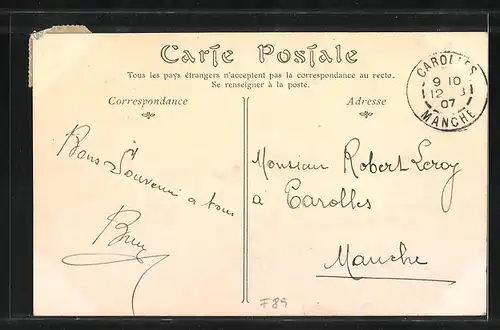 Carte Postale
Tous les pays étrangers n'acceptent pas la correspondance au recto.
Se renseigner à la poste.
Correspondance
Adresse
CAROLLES
9 10
12 3
07
MANCHE
Bons Souvenir a tous
Monsieur Robert Leroy
à Carolles
Manche
F89